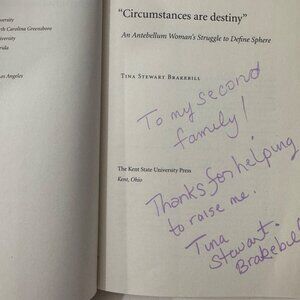 iversity
rth Carolina Greensboro
iversity
rida
os Angeles
“Circumstances are destiny”
An Antebellum Woman's Struggle to Define Sphere
Tina Stewart Brakebill
To my second
family!
The Kent State University Press
Kent, Ohio
Thanks for helping
to raise me.
Tina
Stewart
Brakebill